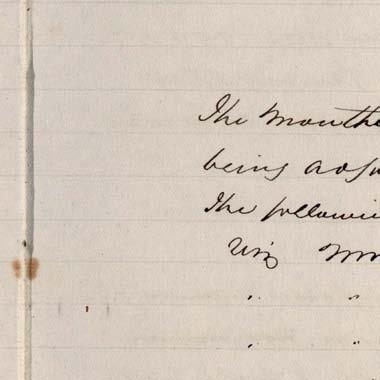 The Month
being
The followi
Viz
" "
" "